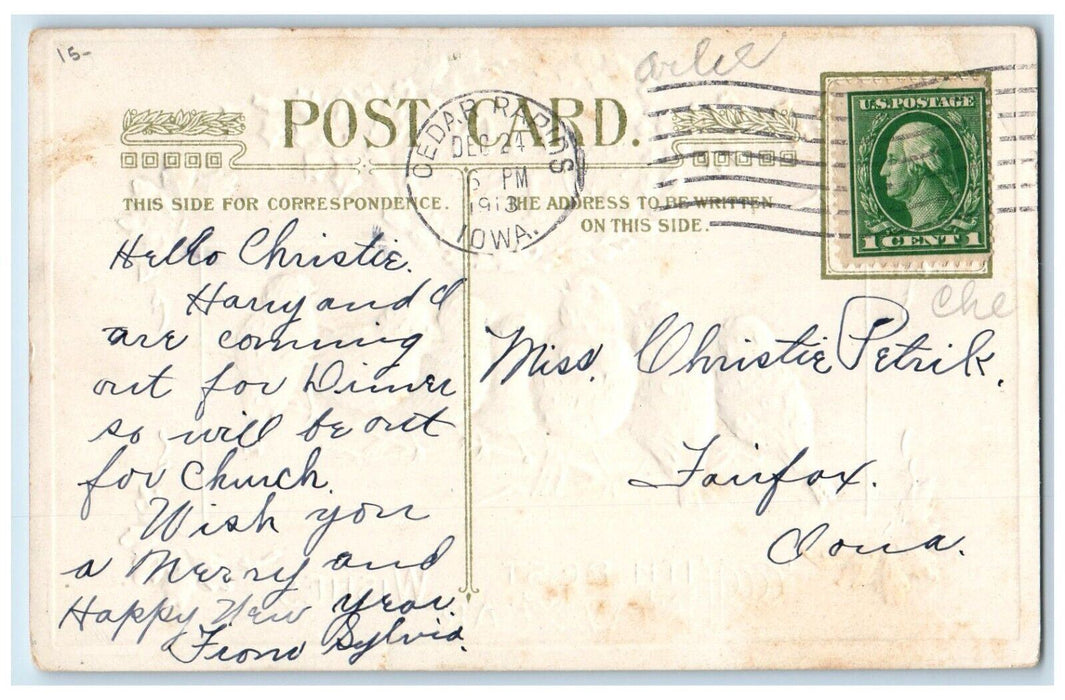 15-
POST CARD.
CEDAR RAPIDS
DEC 24
6 PM
1913
IOWA.
U.S. POSTAGE
1 CENT 1
THIS SIDE FOR CORRESPONDENCE.
THE ADDRESS TO BE WRITTEN
ON THIS SIDE.
Hello Christie.
Harry and I
are comming
out for Dinner
so will be out
for Church.
Wish you
a Merry and
Happy New Year.
From Sylvia.
Miss. Christie Petrik.
Fairfax.
Iowa.